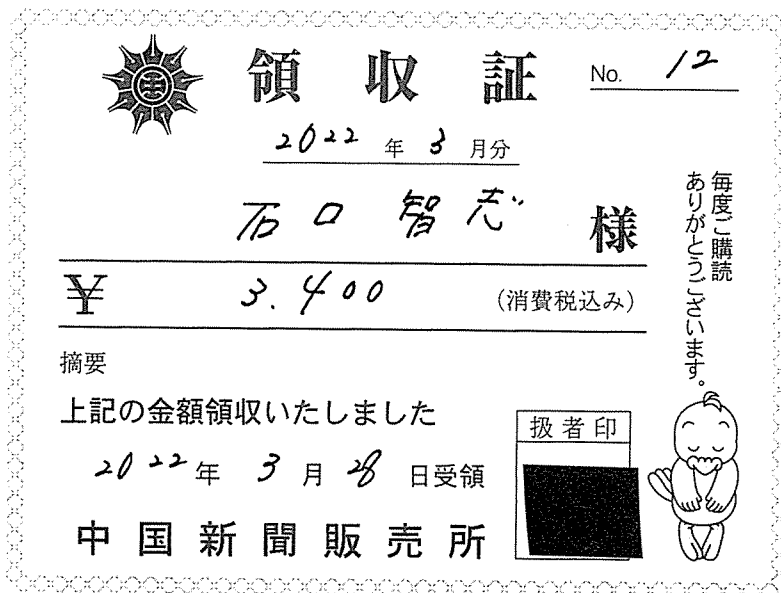 領収証
No. 12
2022年3月分
石口 智志 様
¥ 3.400 (消費税込み)
摘要
上記の金額領収いたしました
2022年3月28日受領
中国新聞販売所
扱者印
毎度ご購読
ありがとうございます。